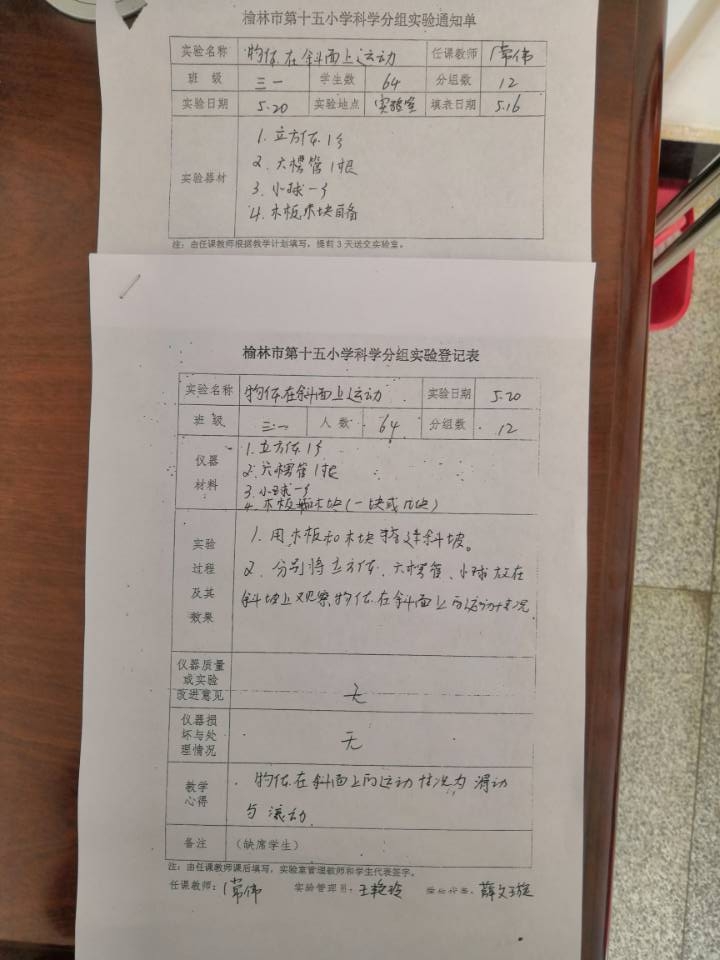 榆林市第十五小学科学分组实验通知单
实验名称 物体在斜面上运动 任课教师 常伟
班 级 三一 学生数 64 分组数 12
实验日期 5.20 实验地点 实验室 填表日期 5.16
实验器材
1. 立方体 1个
2. 六棱管 1根
3. 小球一个
4. 木板木块自备
注：由任课教师根据教学计划填写，提前3天送交实验室。
榆林市第十五小学科学分组实验登记表
实验名称 物体在斜面上运动 实验日期 5.20
班 级 三一 人 数 64 分组数 12
仪器
材料
1. 立方体 1个
2. 六棱管 1根
3. 小球一个
4. 木板 木块（一块或几块）
实验
过程
及其
效果
1. 用木板和木块搭建斜坡。
2. 分别将立方体、六棱管、小球放在
斜坡上观察物体在斜面上的运动情况
仪器质量
或实验
改进意见
无
仪器损
坏与处
理情况
无
教学
心得
物体在斜面上的运动情况为滑动
与滚动
备注 （缺席学生）
注：由任课教师课后填写，实验室管理教师和学生代表签字。
任课教师：常伟 实验管理员：王艳玲 学生代表：薛文璇